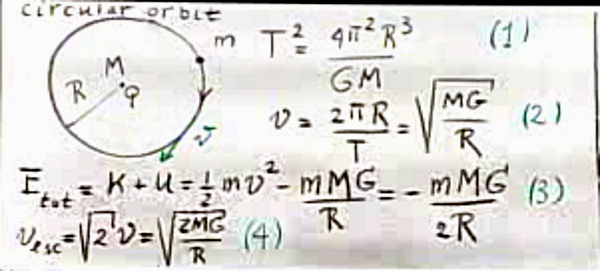 circular orbit
m
M
R
Q
v
T² = 4π²R³ / GM (1)
v = 2πR / T = √(MG / R) (2)
E_tot = K + U = ½ mv² - mMG / R = - mMG / 2R (3)
v_esc = √2 v = √(2MG / R) (4)